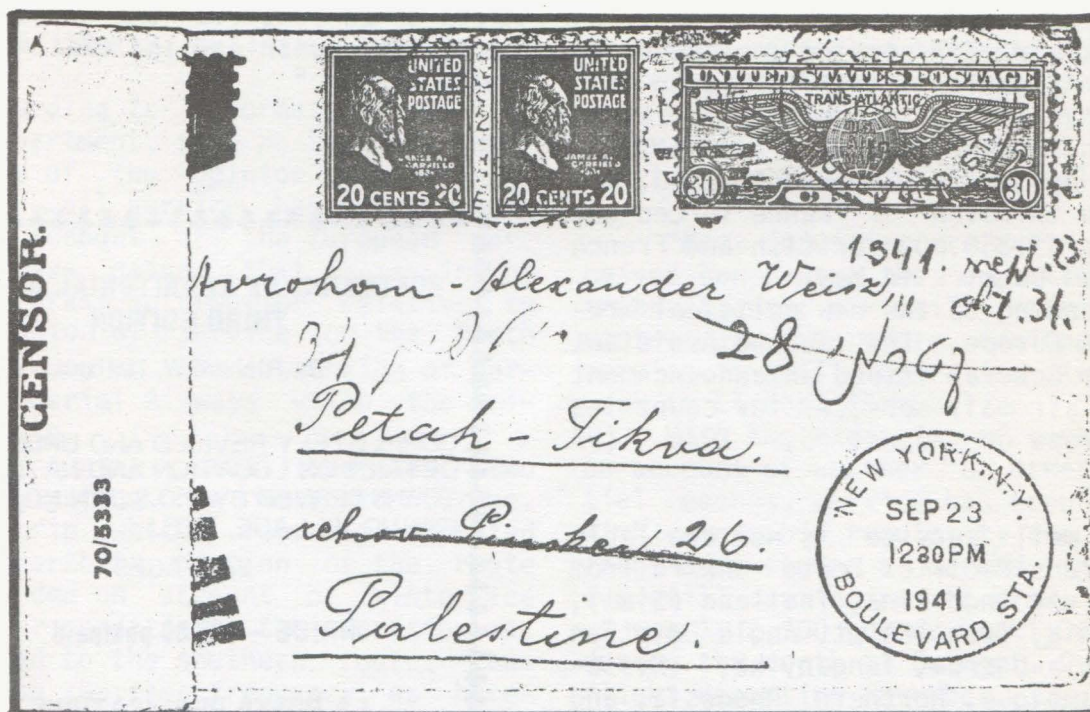 A
UNITED
STATES
POSTAGE
JAMES A.
GARFIELD
20 CENTS 20
UNITED
STATES
POSTAGE
JAMES A.
GARFIELD
20 CENTS 20
UNITED STATES POSTAGE
TRANS-ATLANTIC
30 CENTS 30
CENSOR.
70/5333
1941. sept. 23.
okt. 31.
28 nap
Avrohom - Alexander Weisz
Petah - Tikva.
Rechov Pinsker 26.
Palestine.
NEW YORK, N.Y.
SEP 23
1230PM
1941
BOULEVARD STA.